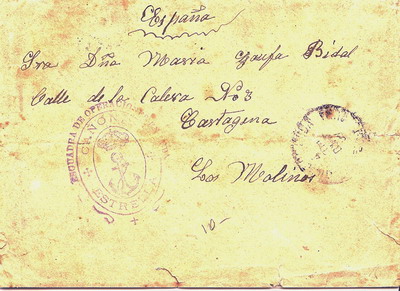 España
Sra Dña Maria Zaufa Bidal
Calle de la Calera No 3
Cartagena
Los Molinos
ESQUADRA DE OPERACIO
ESTRELLA
10-